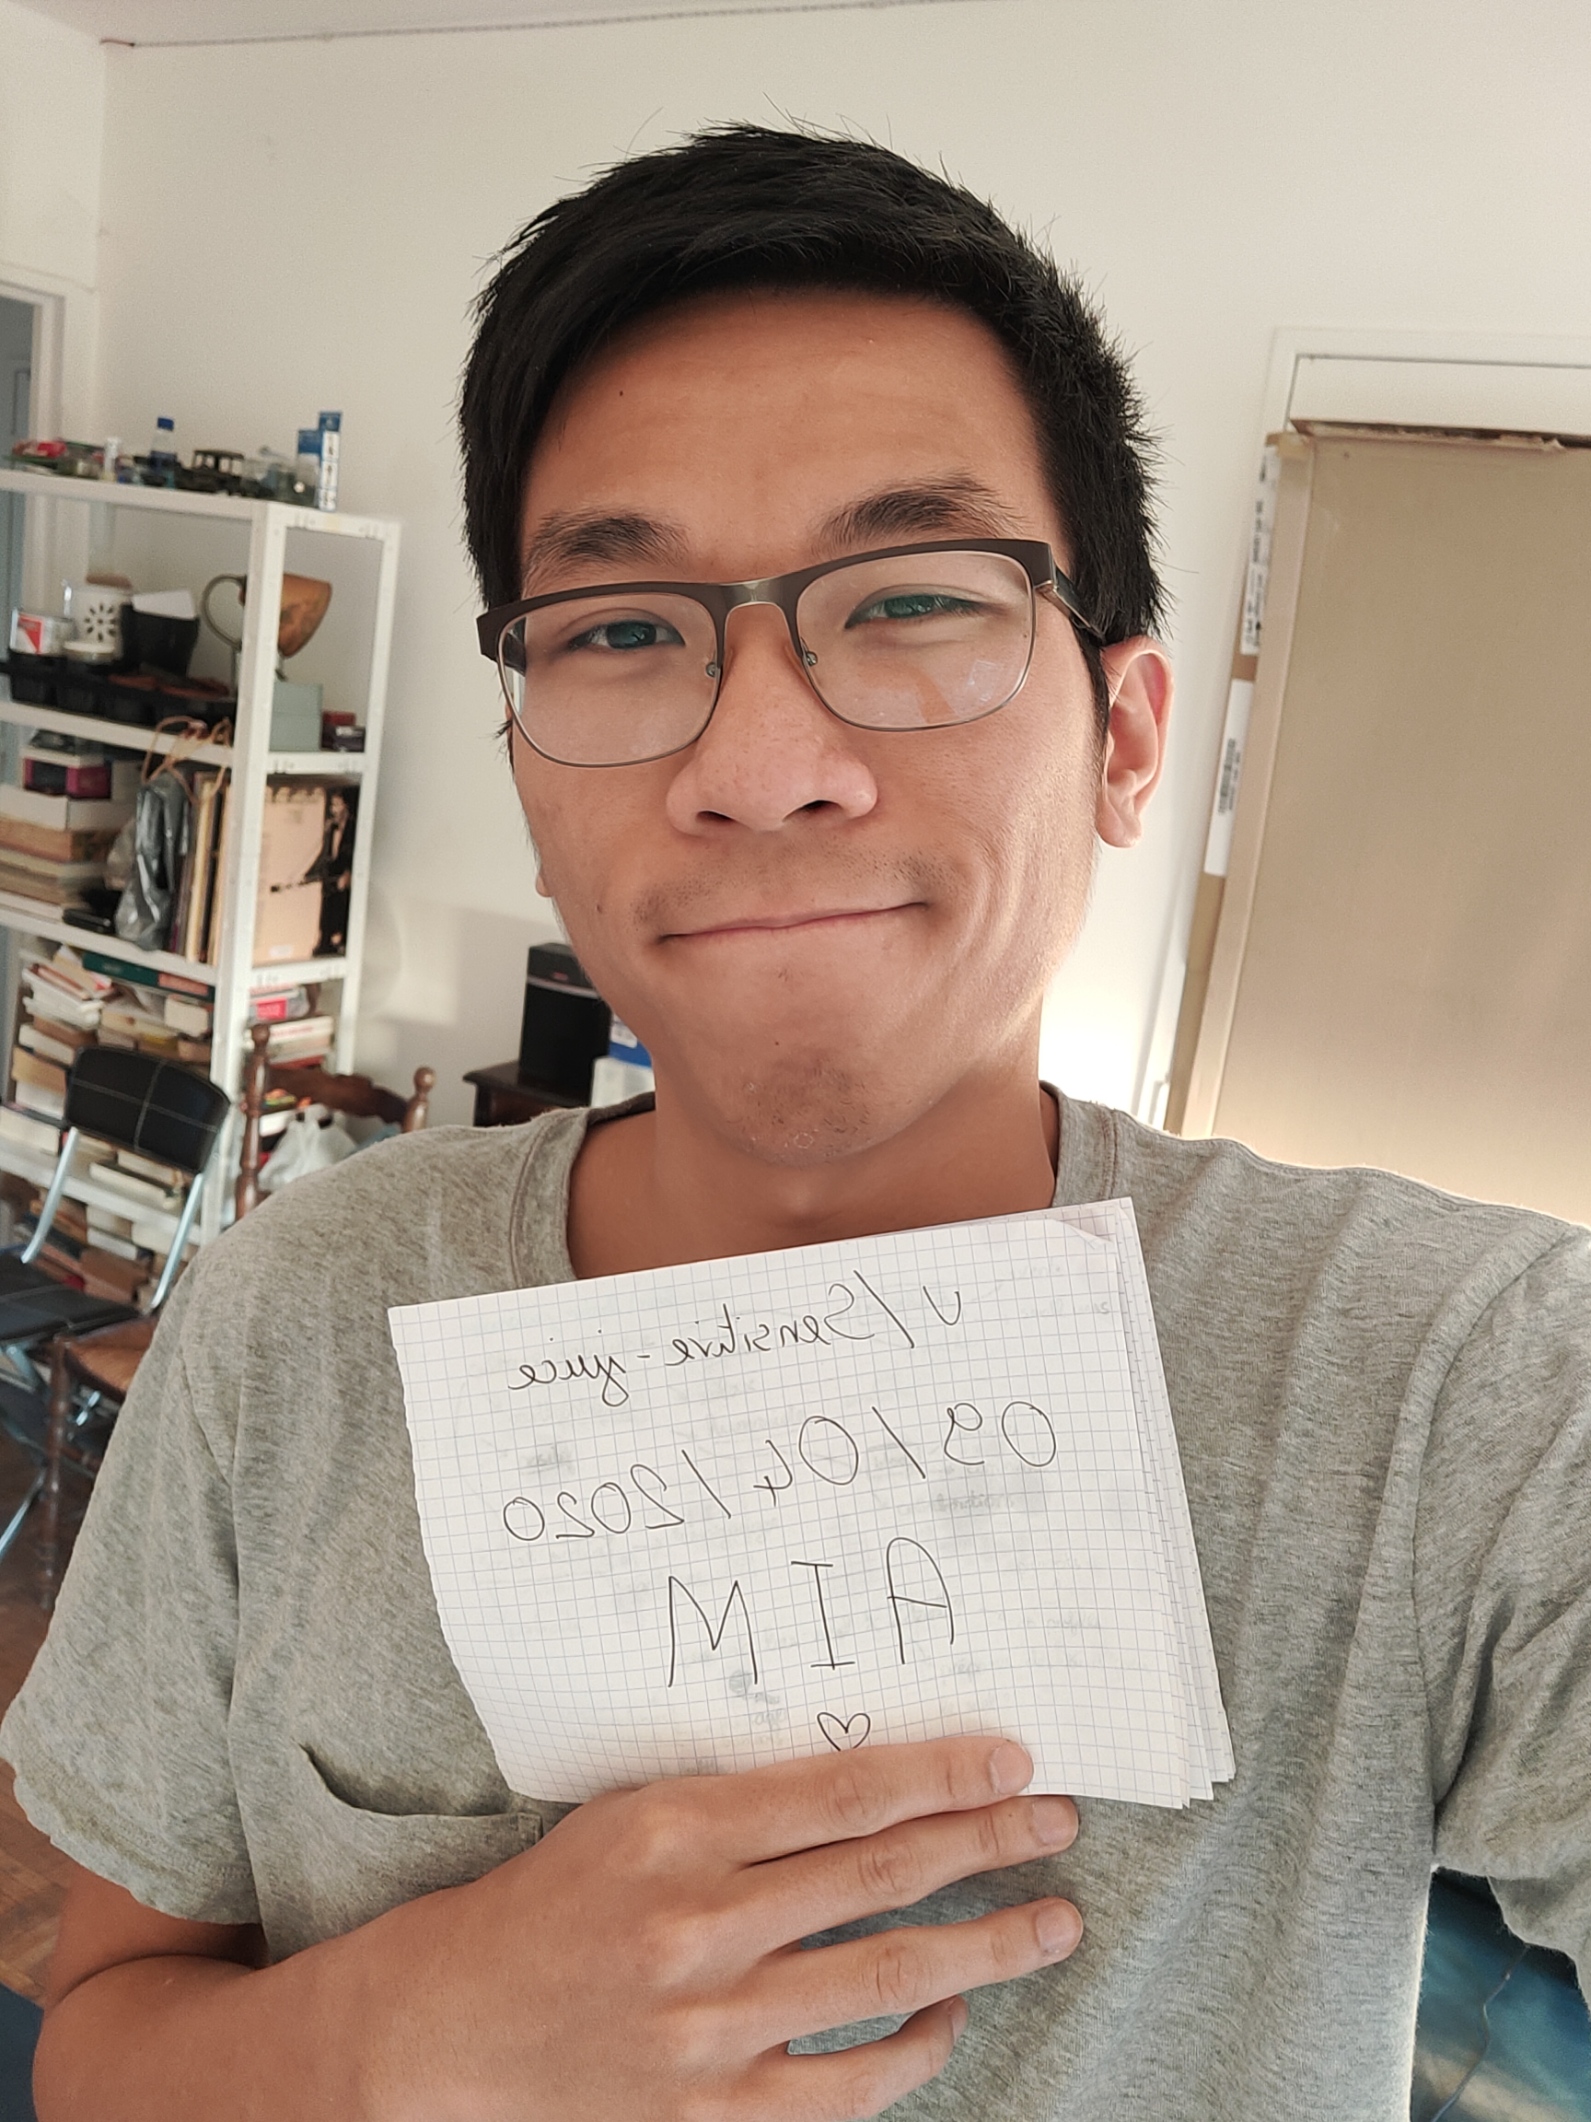 u/Sensitive-juice
09/04/2020
AIM